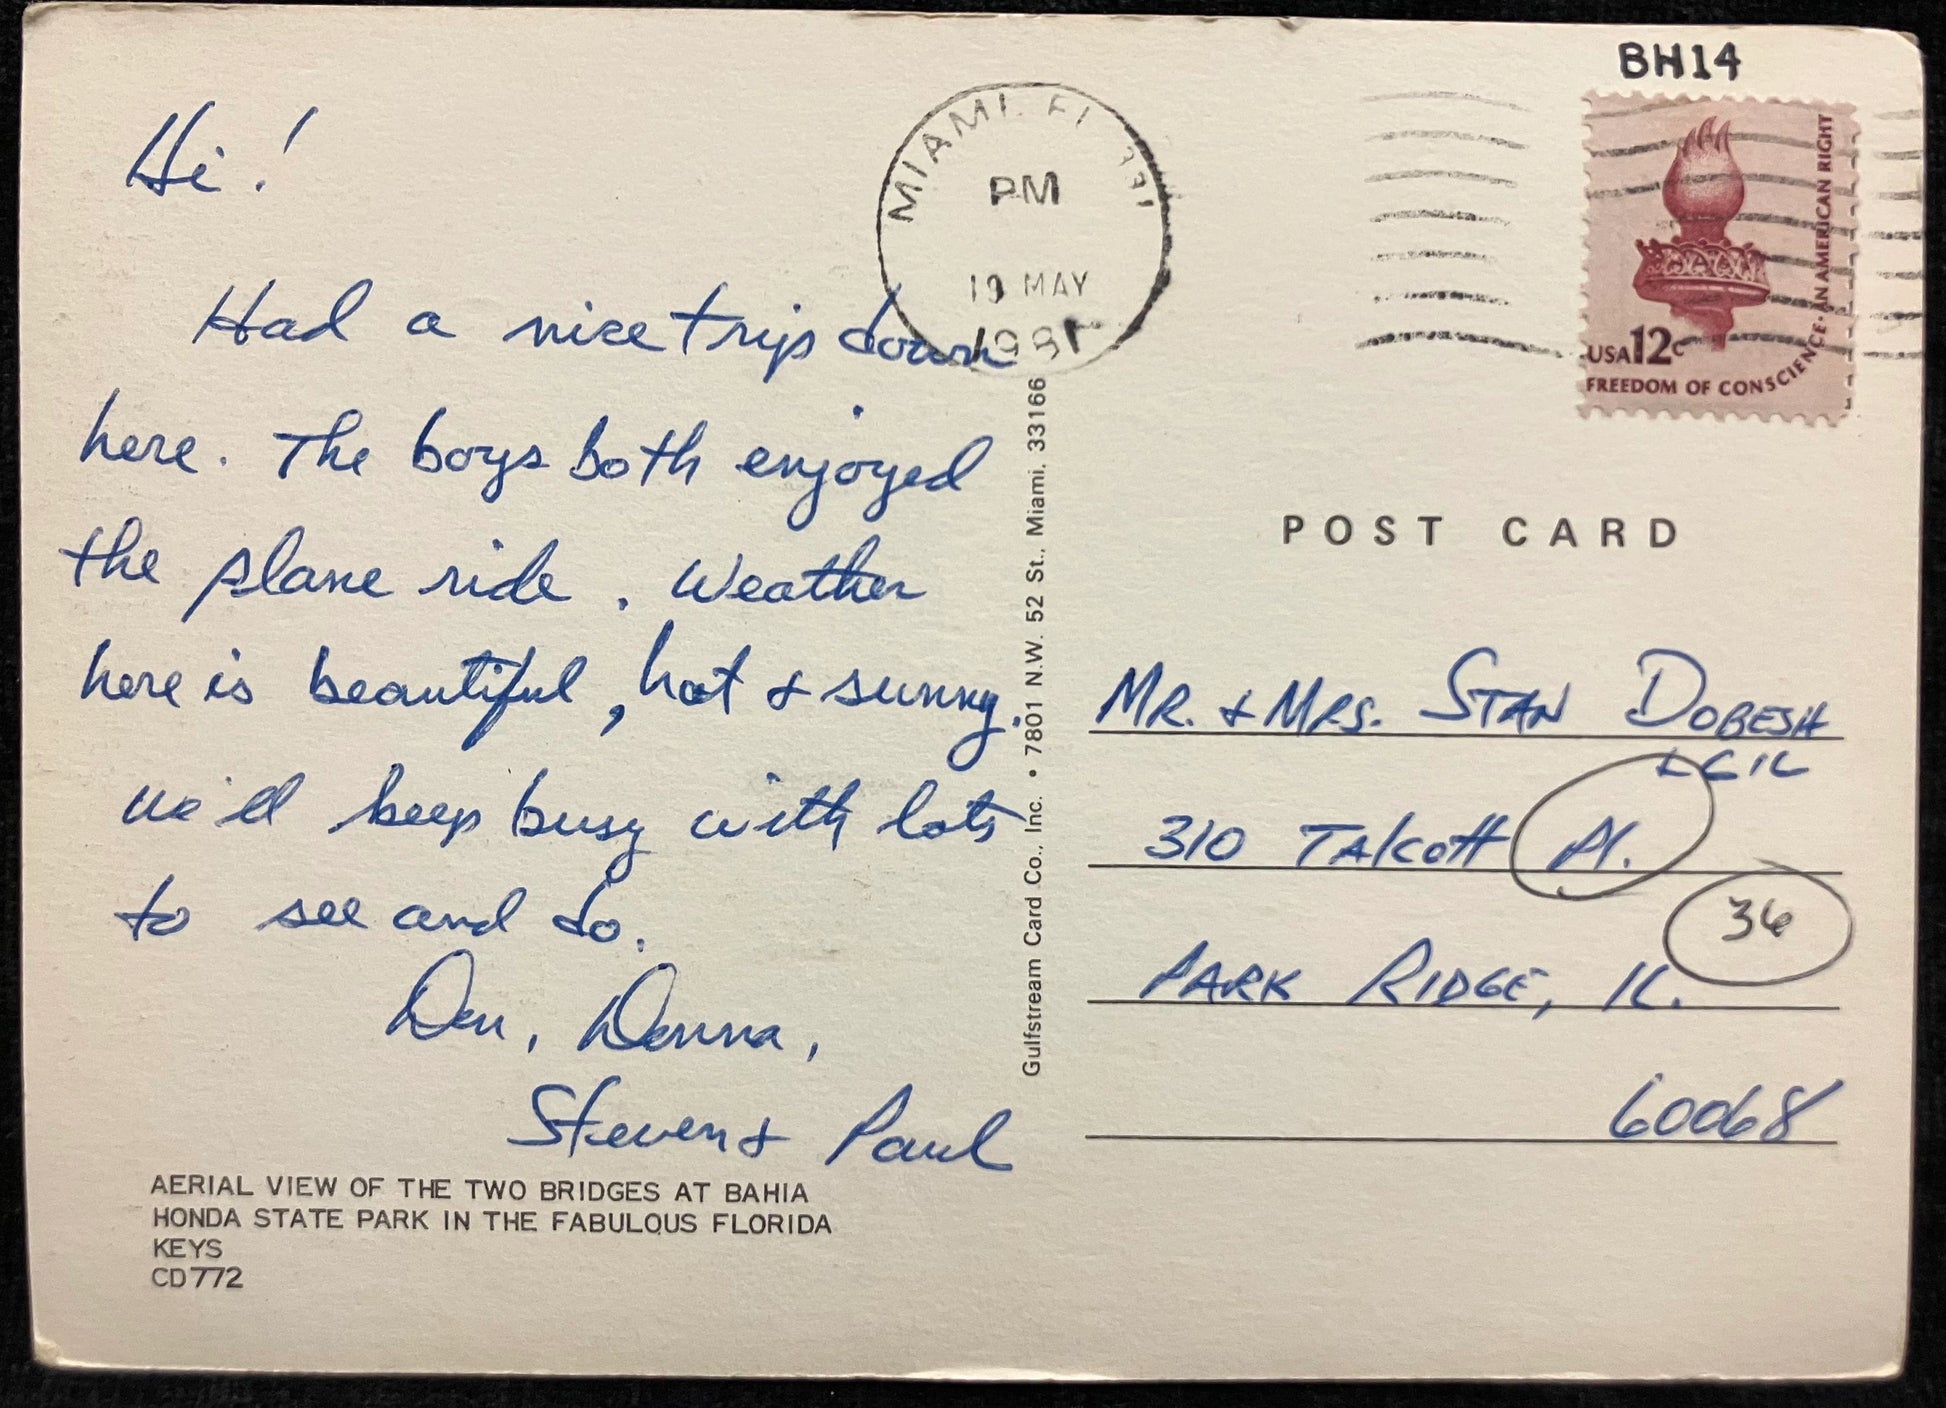 Hi!
Had a nice trip down
here. The boys both enjoyed
the plane ride. Weather
here is beautiful, hot & sunny.
We'll keep busy with lots
to see and do.
Don, Donna,
Steven & Paul
AERIAL VIEW OF THE TWO BRIDGES AT BAHIA
HONDA STATE PARK IN THE FABULOUS FLORIDA
KEYS
CD772
Gulfstream Card Co., Inc. • 7801 N.W. 52 St., Miami, 33166
MIAMI. FL 331
PM
19 MAY
1981
BH14
USA 12c
FREEDOM OF CONSCIENCE • AN AMERICAN RIGHT
POST CARD
MR. & MRS. STAN DOBESH
310 Talcott Pl.
36
PARK RIDGE, IL.
60068